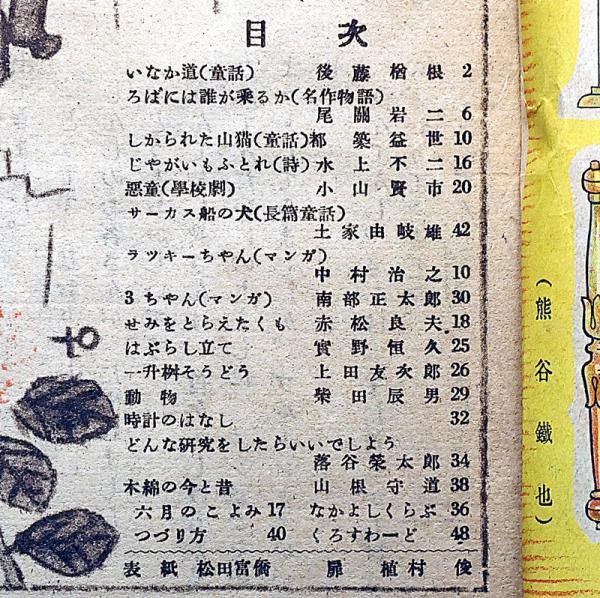 目次
いなか道(童話) 後藤楢根 2
ろばには誰が乘るか(名作物語)
尾關岩二 6
しかられた山猫(童話) 都築益世 10
じやがいもふとれ(詩) 水上不二 16
惡童(學校劇) 小山賢市 20
サーカス船の犬(長篇童話)
土家由岐雄 42
ラツキーちやん(マンガ)
中村治之 10
3ちやん(マンガ) 南部正太郎 30
せみをとらえたくも 赤松良夫 18
はぶらし立て 實野恒久 25
一升桝そうどう 上田友次郎 26
動物 柴田辰男 29
時計のはなし 32
どんな硏究をしたらいいでしよう
落谷榮太郎 34
木綿の今と昔 山根守道 38
六月のこよみ 17 なかよしくらぶ 36
つづり方 40 くろすわーど 48
表紙 松田富僑 扉 植村俊
(熊谷鐵也)